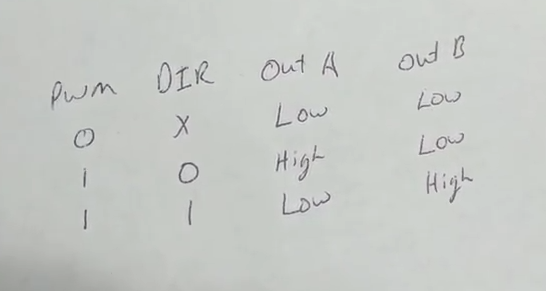 PWM DIR Out A Out B
0 X Low Low
1 0 High Low
1 1 Low High